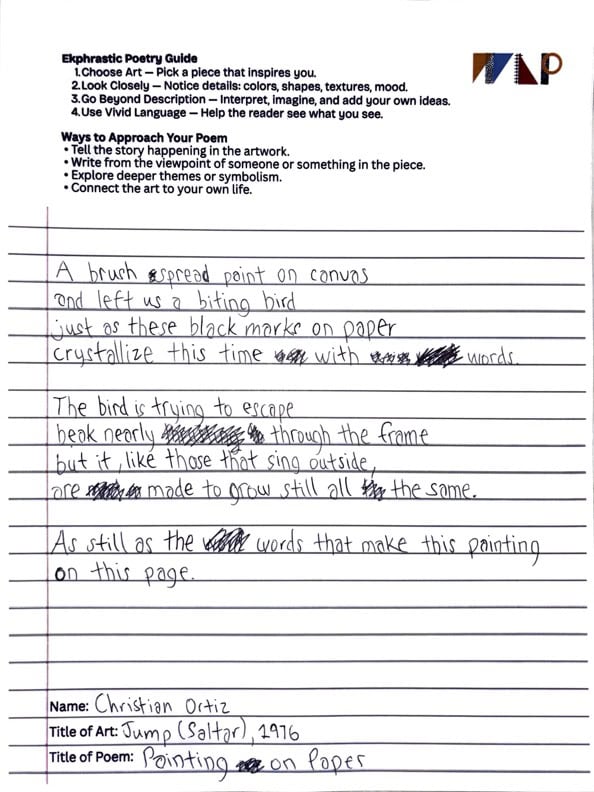 Ekphrastic Poetry Guide
1.Choose Art — Pick a piece that inspires you.
2.Look Closely — Notice details: colors, shapes, textures, mood.
3.Go Beyond Description — Interpret, imagine, and add your own ideas.
4.Use Vivid Language — Help the reader see what you see.
Ways to Approach Your Poem
• Tell the story happening in the artwork.
• Write from the viewpoint of someone or something in the piece.
• Explore deeper themes or symbolism.
• Connect the art to your own life.
A brush spread paint on canvas
and left us a biting bird
just as these black marks on paper
crystallize this time with words.
The bird is trying to escape
beak nearly through the frame
but it, like those that sing outside,
are made to grow still all the same.
As still as the words that make this painting
on this page.
Name: Christian Ortiz
Title of Art: Jump (Saltar), 1976
Title of Poem: Painting on Paper